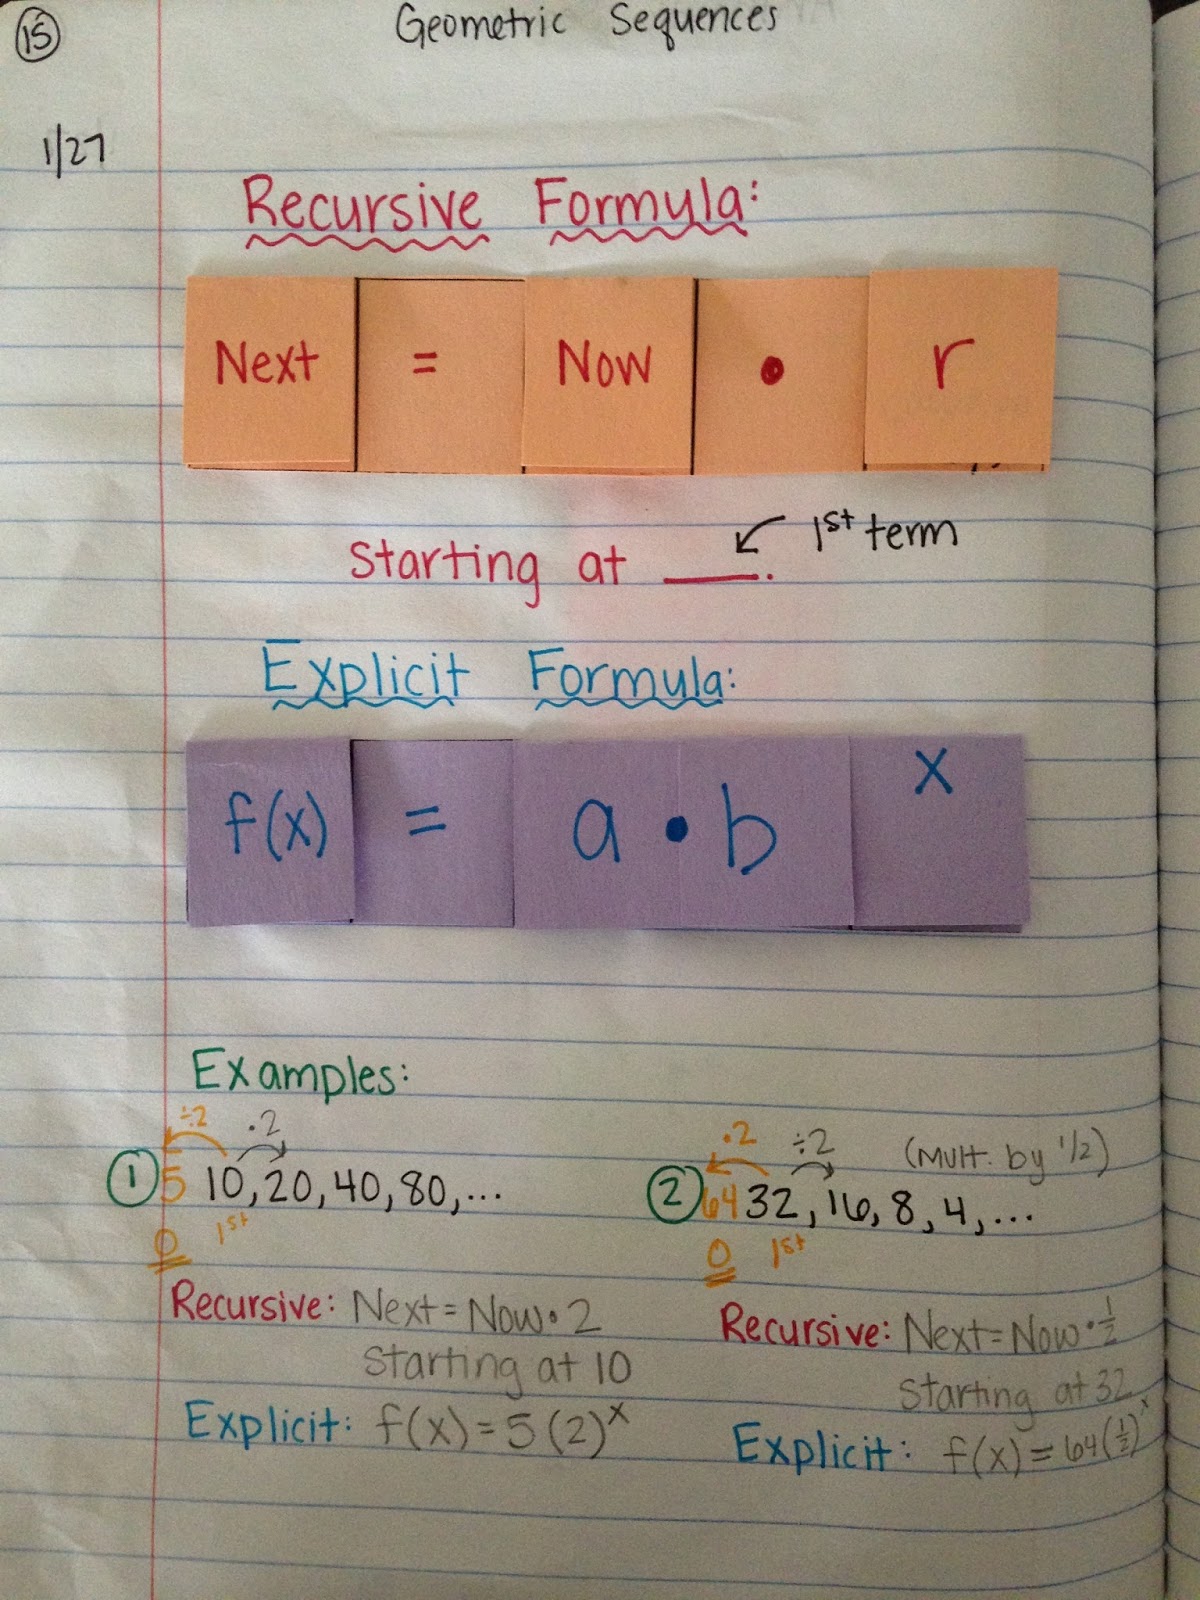 15
Geometric Sequences
1/27
Recursive Formula:
Next = Now • r
Starting at ____. 1st term
Explicit Formula:
f(x) = a • b^x
Examples:
÷2 •2
① 5 10, 20, 40, 80, ...
0 1st
Recursive: Next = Now • 2
Starting at 10
Explicit: f(x) = 5(2)^x
•2 ÷2 (Mult. by 1/2)
② 64 32, 16, 8, 4, ...
0 1st
Recursive: Next = Now • 1/2
Starting at 32
Explicit: f(x) = 64(1/2)^x